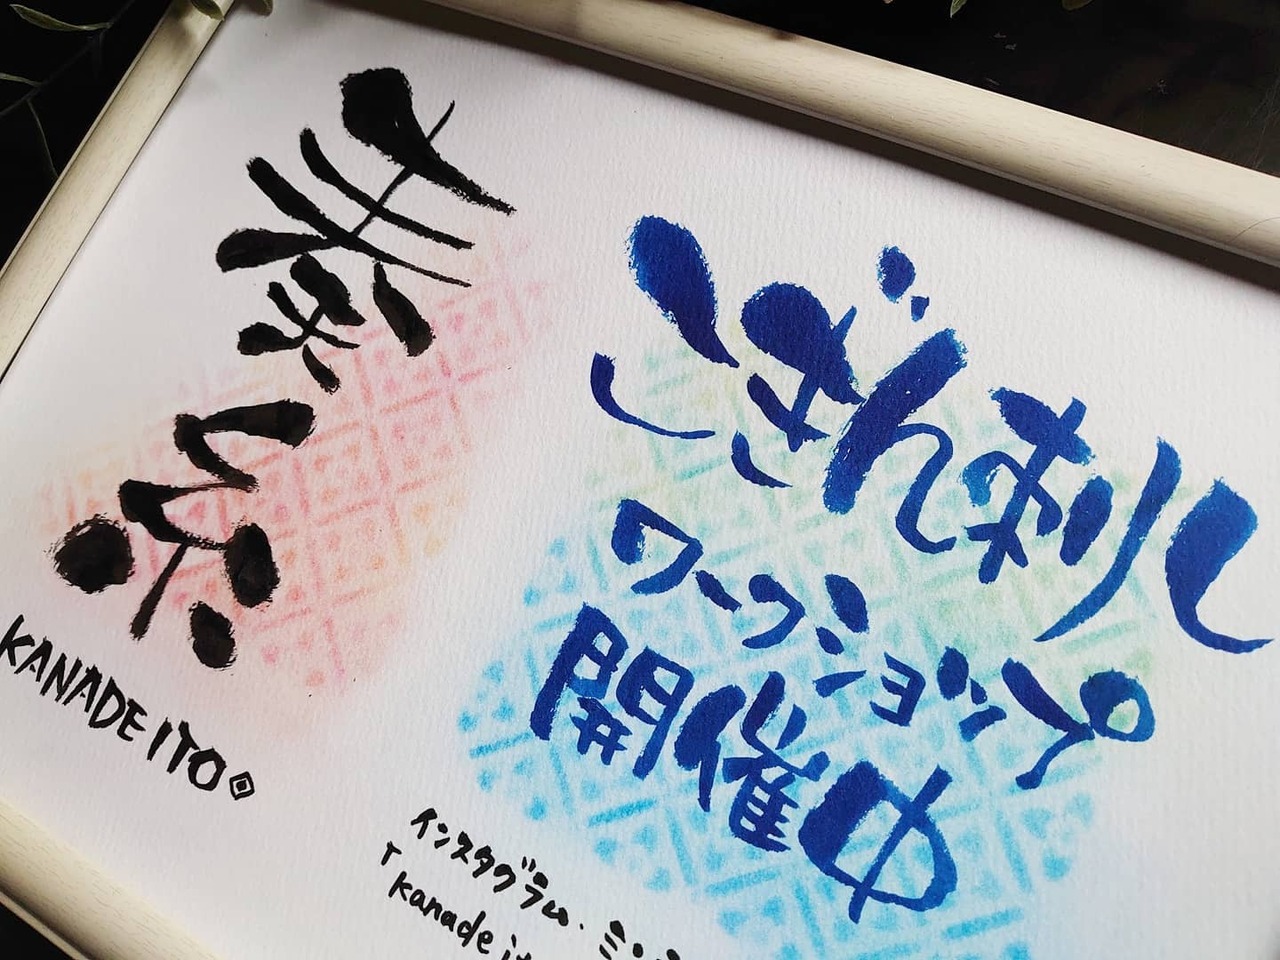 奏いと
KANADE ITO
こぎん刺し
ワークショップ
開催中
インスタグラム・ミンネ
「kanade it